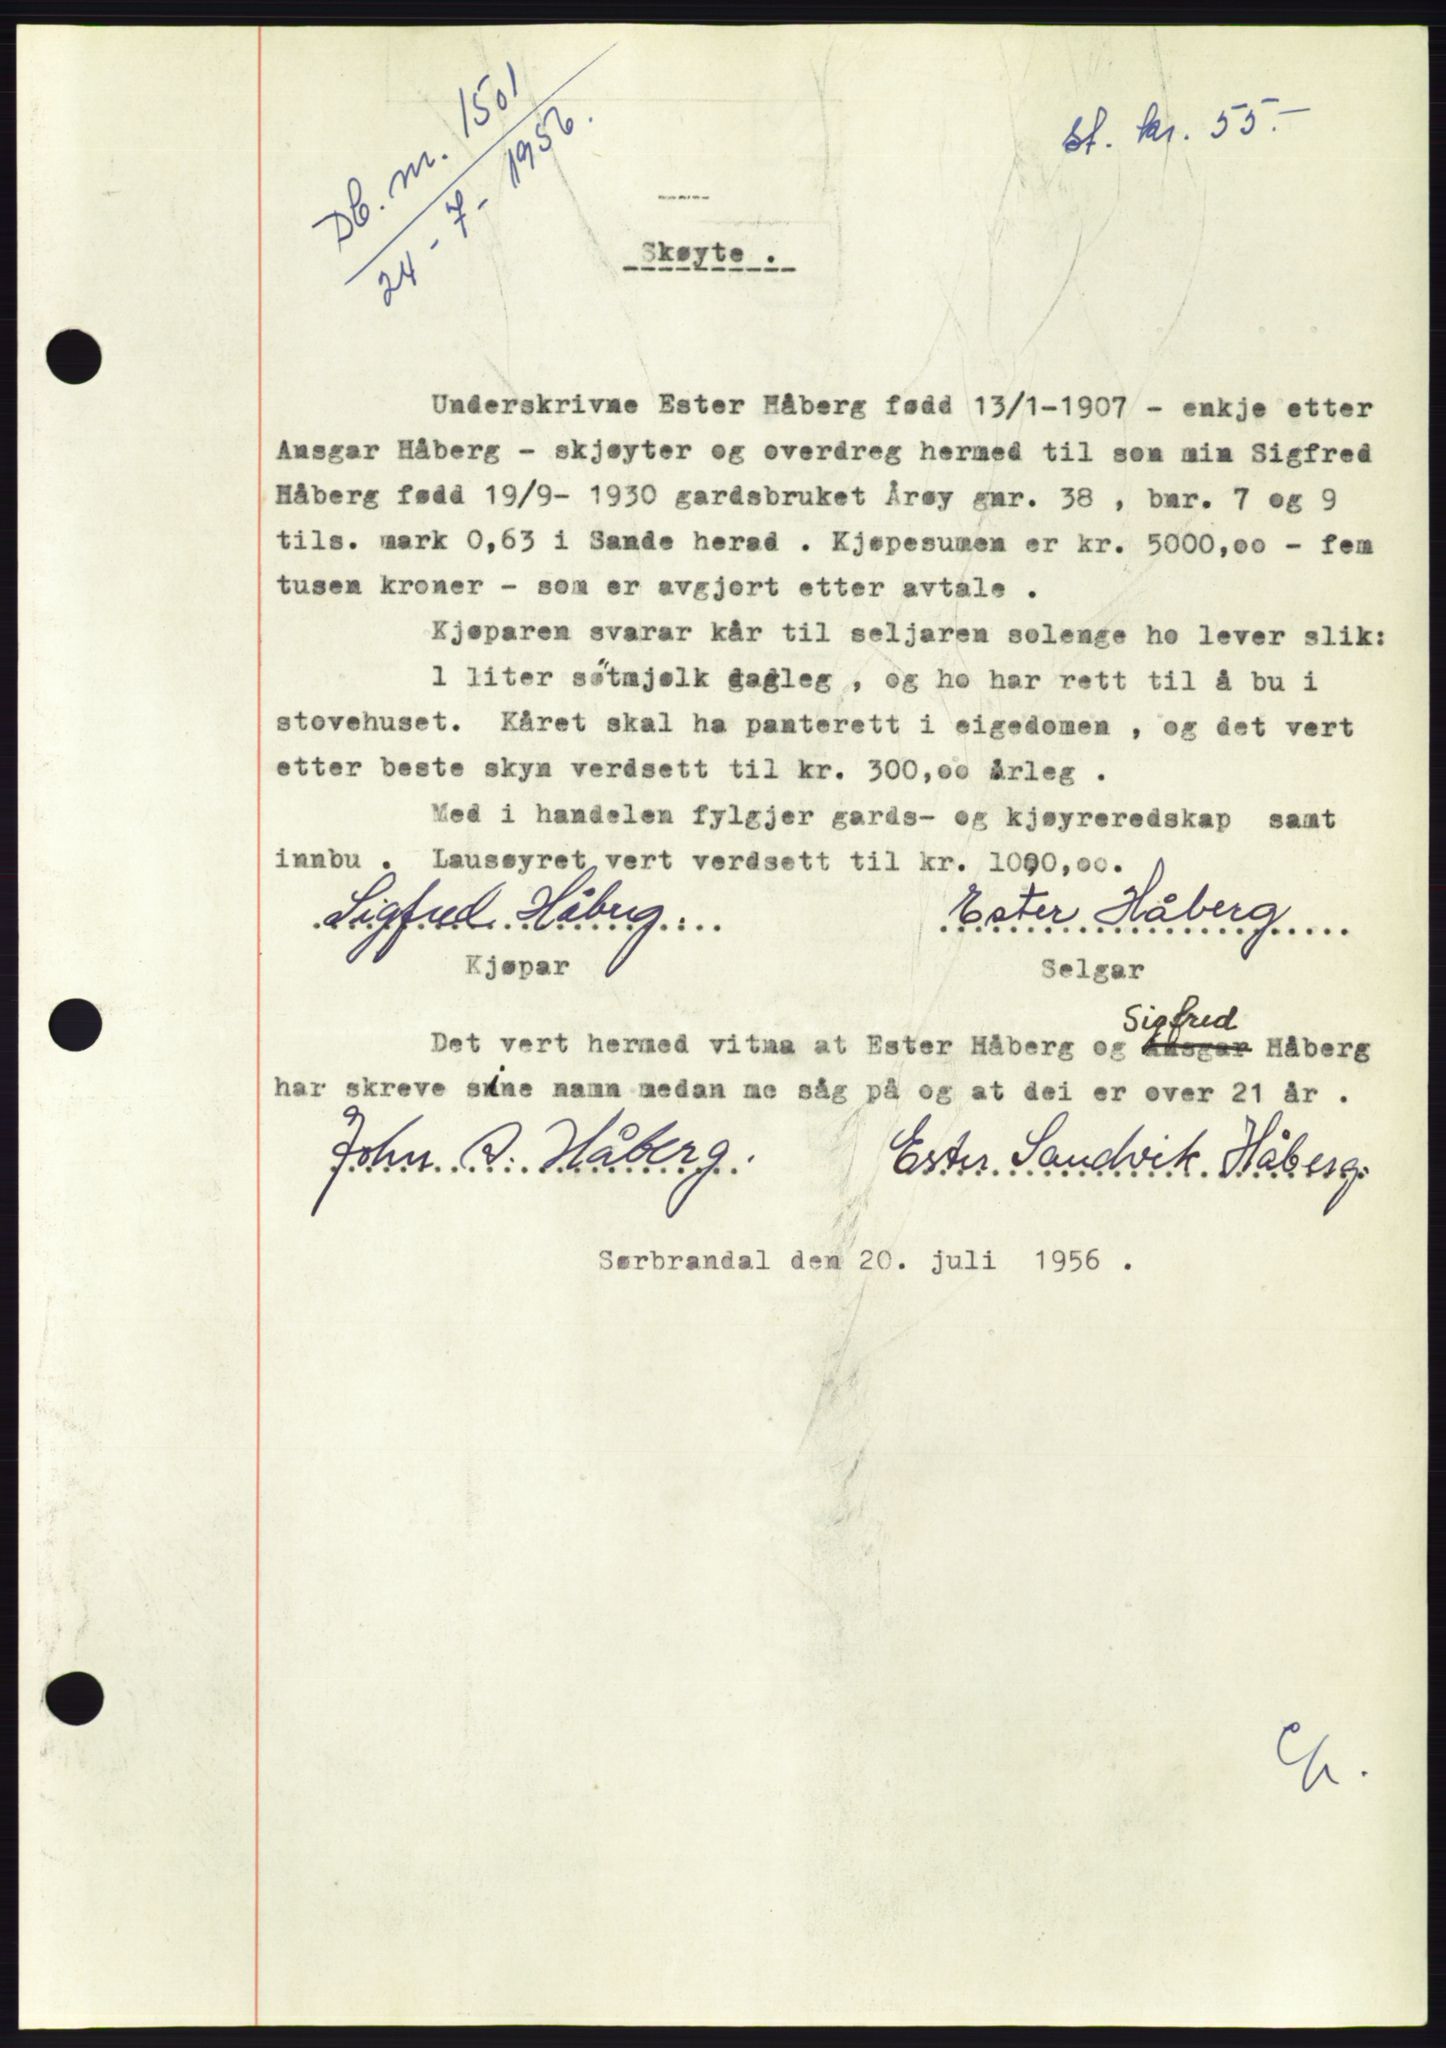 Db. nr. 1501
24 - 7 - 1956.
st. kr. 55.-
----
Skøyte .
Underskrivne Ester Håberg fødd 13/1-1907 - enkje etter
Ansgar Håberg - skjøyter og overdreg hermed til son min Sigfred
Håberg fødd 19/9- 1930 gardsbruket Årøy gnr. 38 , bnr. 7 og 9
tils. mark 0,63 i Sande herad . Kjøpesumen er kr. 5000,oo - fem
tusen kroner - som er avgjort etter avtale .
Kjøparen svarar kår til seljaren solenge ho lever slik:
1 liter søtmjølk dagleg , og ho har rett til å bu i
stovehuset. Kåret skal ha panterett i eigedomen , og det vert
etter beste skyn verdsett til kr. 300,oo årleg .
Med i handelen fylgjer gards- og kjøyreredskap samt
innbu . Lausøyret vert verdsett til kr. 1000,oo.
Sigfred Håberg Ester Håberg
Kjøpar Selgar
Sigfred
Det vert hermed vitna at Ester Håberg og Ansgar Håberg
har skreve sine namn medan me såg på og at dei er over 21 år .
John Håberg. Ester Sandvik Håberg.
Sørbrandal den 20. juli 1956 .